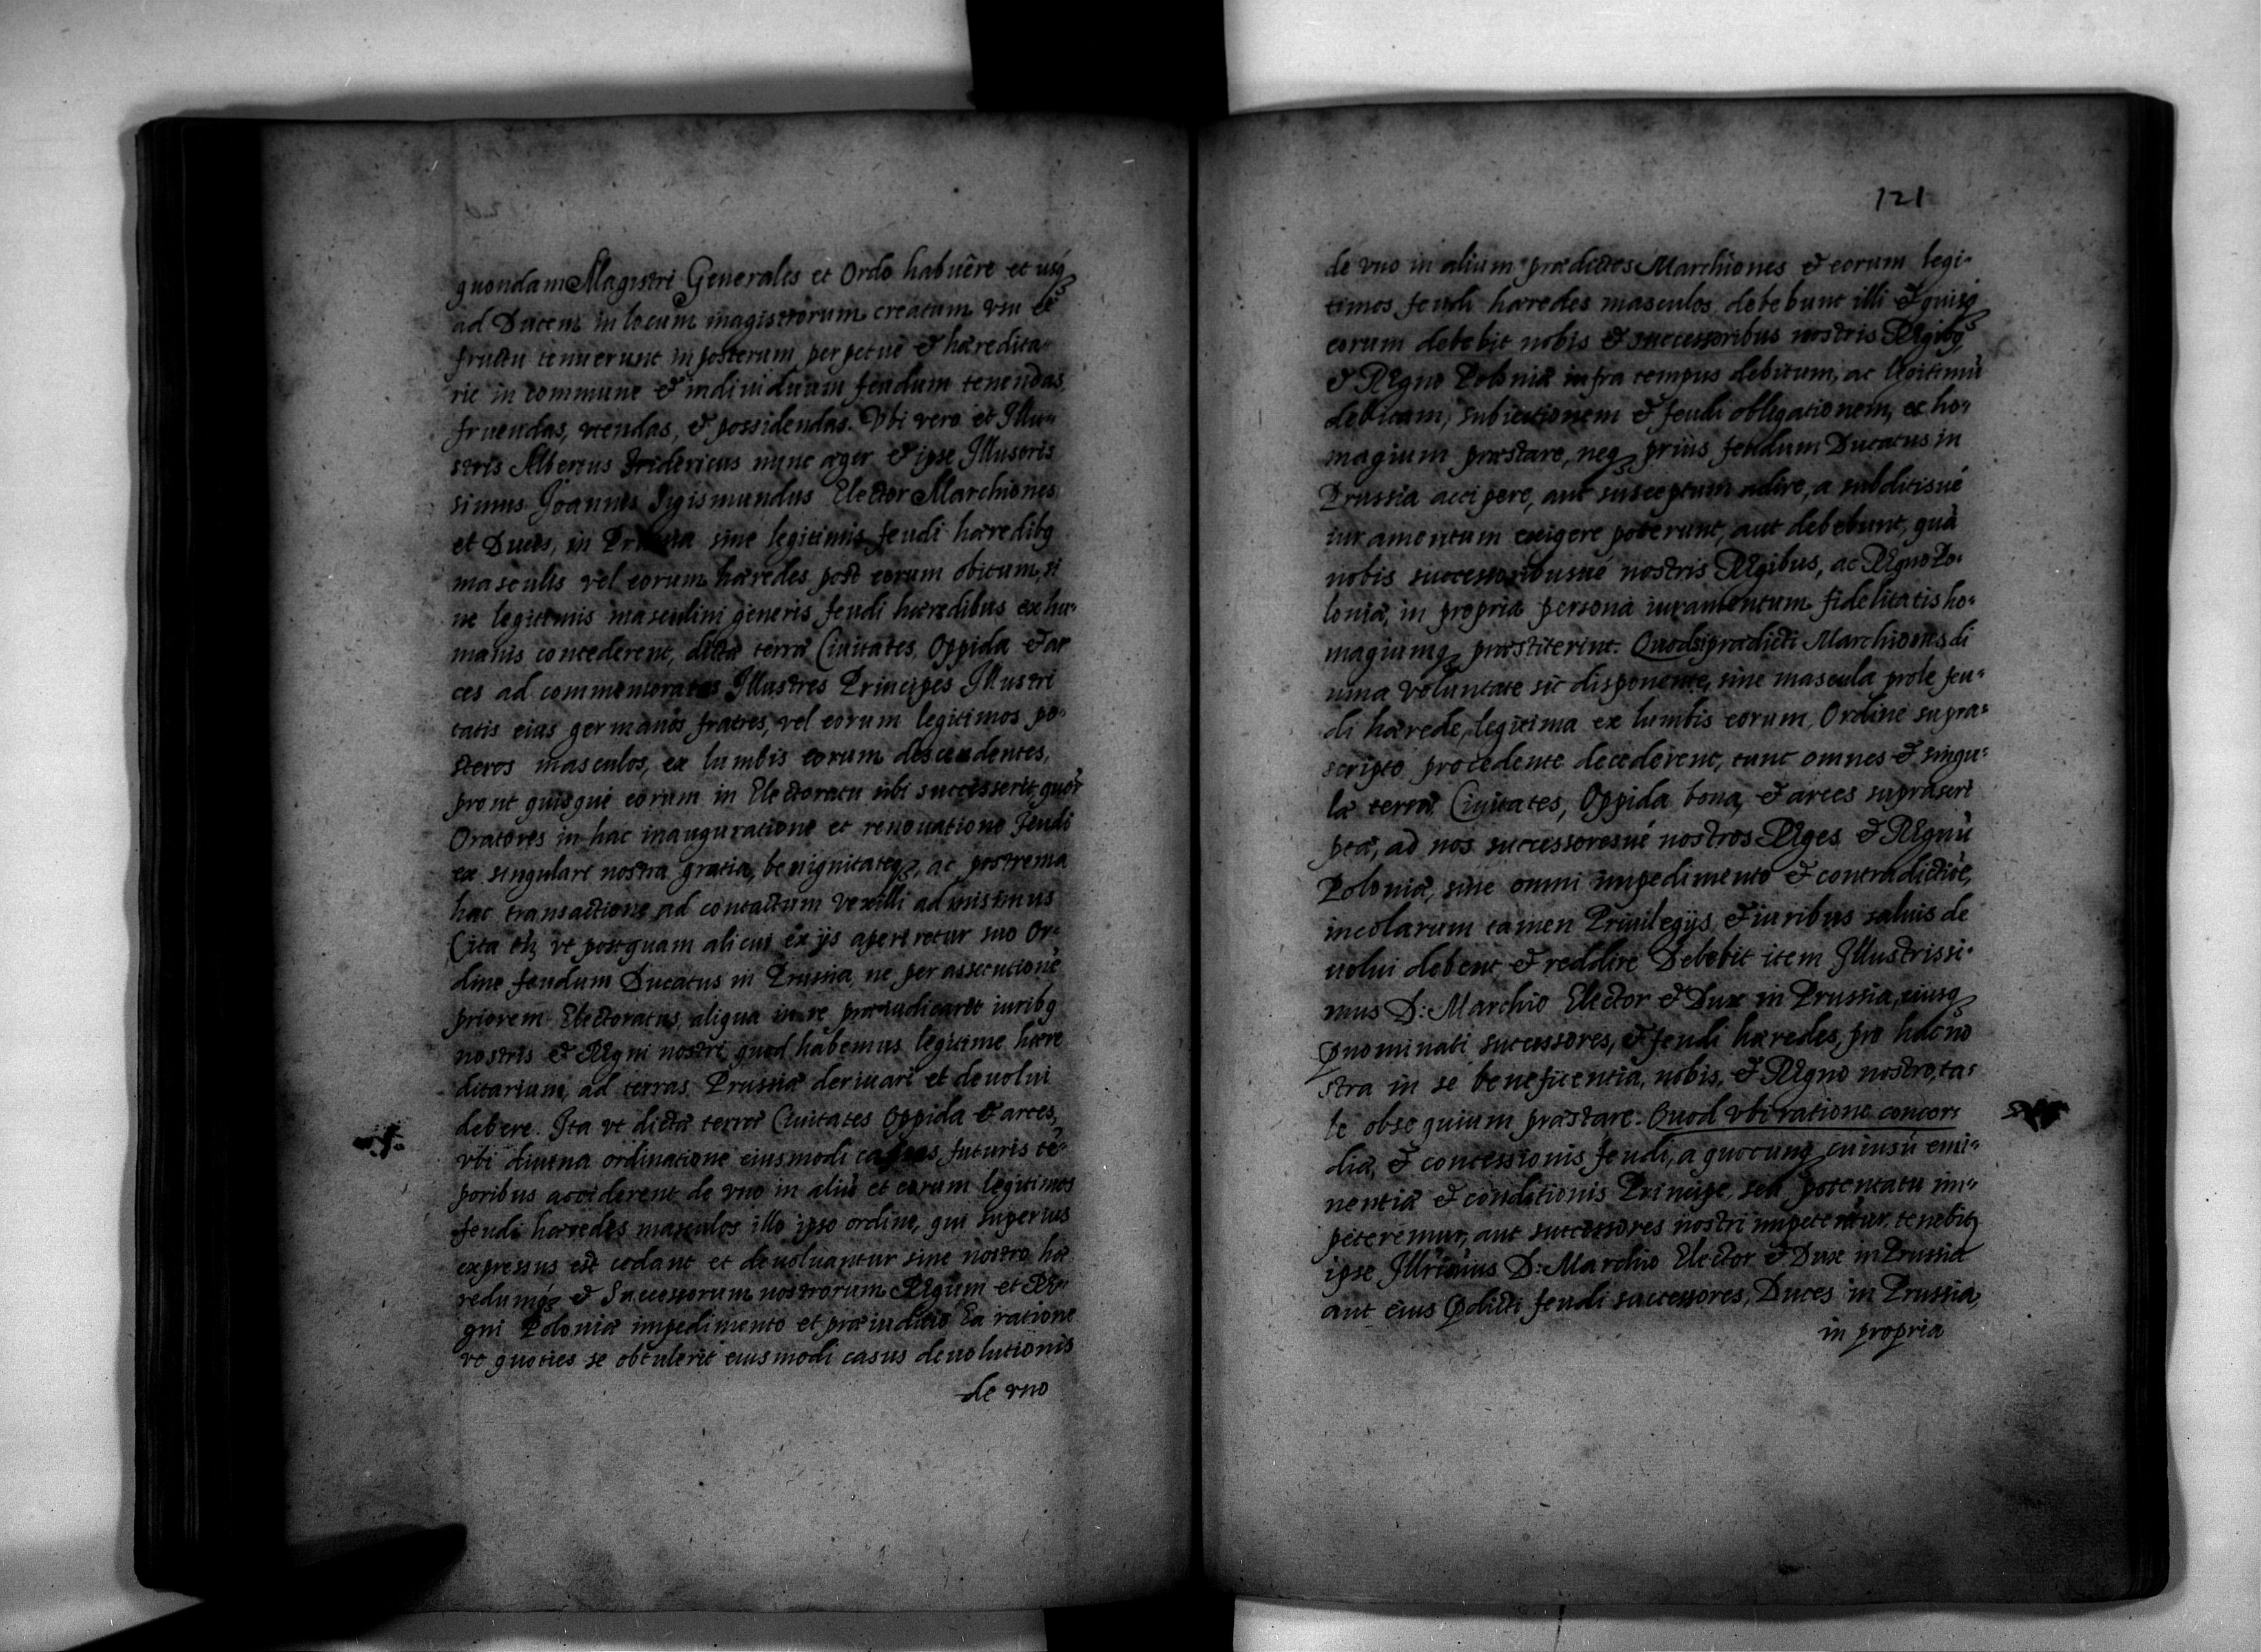 quondam Magistri Generales et Ordo habuêre et usq3
ad Ducem in locum magistrorum creatum vsu et
fructu tenuerunt in posterum perpetuè & hæredita-
rie in commune & indiuiduum feudum tenendas
fruendas, vtendas, & possidendas. Vbi vero et Illu-
stris Albertus Fridericus nunc æger & ipse Illustris
simus Joannes Sigismundus Elector Marchiones
et Duces, in Prussia sine legitimis feudi hæredibq
masculis vel eorum hæredes post eorum obitum, si
ne legitimis masculini generis feudi hæredibus ex hu-
manis concederent, dictæ terræ Ciuitates, Oppida & ar
ces ad commemoratos Illustres Principes Illustri
tatis eius germanos fratres, vel eorum legitimos po-
steros masculos, ex lumbis eorum descendentes,
prout quisque eorum in Electoratu sibi successerit, quor̃
Oratores in hac inauguratione et renouatione feudi
ex singulari nostra gratia, benignitateq3, ac postrema
hac transactione ad contactum vexilli admisimus
(ita tñ vt postquam alicui ex ijs aperiretur suo Or-
dine feudum Ducatus in Prussia, ne per assecutionẽ
priorem Electoratus, aliqua in re præiudicaret iuribq
nostris & Regni nostri, quod habemus legitime hære
ditarium, ad terras Prussiæ deriuari et deuolui
debere. Ita vt dictæ terræ Ciuitates Oppida & arces,
vbi diuina ordinatione eiusmodi casus futuris tẽ-
poribus acciderent de vno in aliũ et eorum legitimos
feudi hæredes masculos illo ipso ordine, qui superius
expressus est cedant et deuoluantur sine nostro hæ
redumq3 & Successorum nostrorum Regum et Re-
gni Poloniæ impedimento et præiudicio Ea ratione
vt quoties se obtulerit eiusmodi casus deuolutionis
de vno
121
de vno in alium prædictos Marchiones & eorum legi-
timos feudi hæredes masculos, debebunt illi & quisq3
eorum debebit nobis & successoribus nostris Regibq
& Regno Poloniæ infra tempus debitum, ac legitimũ
debitam, subiectionem & feudi obligationem, et ho-
magium præstare, neq3 prius feudum Ducatus in
Prussia accipere, aut susceptum adire, a subditisué
iuramentum exigere poterunt, aut debebunt, quã
nobis successoribusué nostris Regibus, ac Regno Po-
loniæ, in propria persona iuramentum fidelitatis ho-
magiumq3 præstiterint. Quodsi prædicti Marchiones di
uina voluntate sic disponente, sine mascula prole feu-
di hærede, legitima ex lumbis eorum, Ordine supra-
scripto procedente decederent, tunc omnes & singu-
læ terræ Ciuitates, Oppida bona, & arces suprascri
ptæ, ad nos successoresué nostros Reges & Regnũ
Poloniæ, sine omni impedimento & contradictiõe,
incolarum tamen Priuilegijs & iuribus saluis de
uolui debent & reddire Debebit item Illustrissi-
mus D: Marchio Elector & Dux in Prussia, eiusq3
p̃nominati successores, & feudi hæredes, pro hac no
stra in se beneficentia, nobis, & Regno nostro, ta-
le obsequium præstare. Quod vbi ratione concor-
diæ, & concessionis feudi, a quocunq3 cuiusũ emi-
nentiæ & conditionis Principe, seu potentatu im-
peteremur, aut successores nostri impeterentur, tenebit͛
ipse Illr̃imus D: Marchio Elector & Dux in Prussia
aut eius p̃dicti feudi successores, Duces in Prussia,
in propria